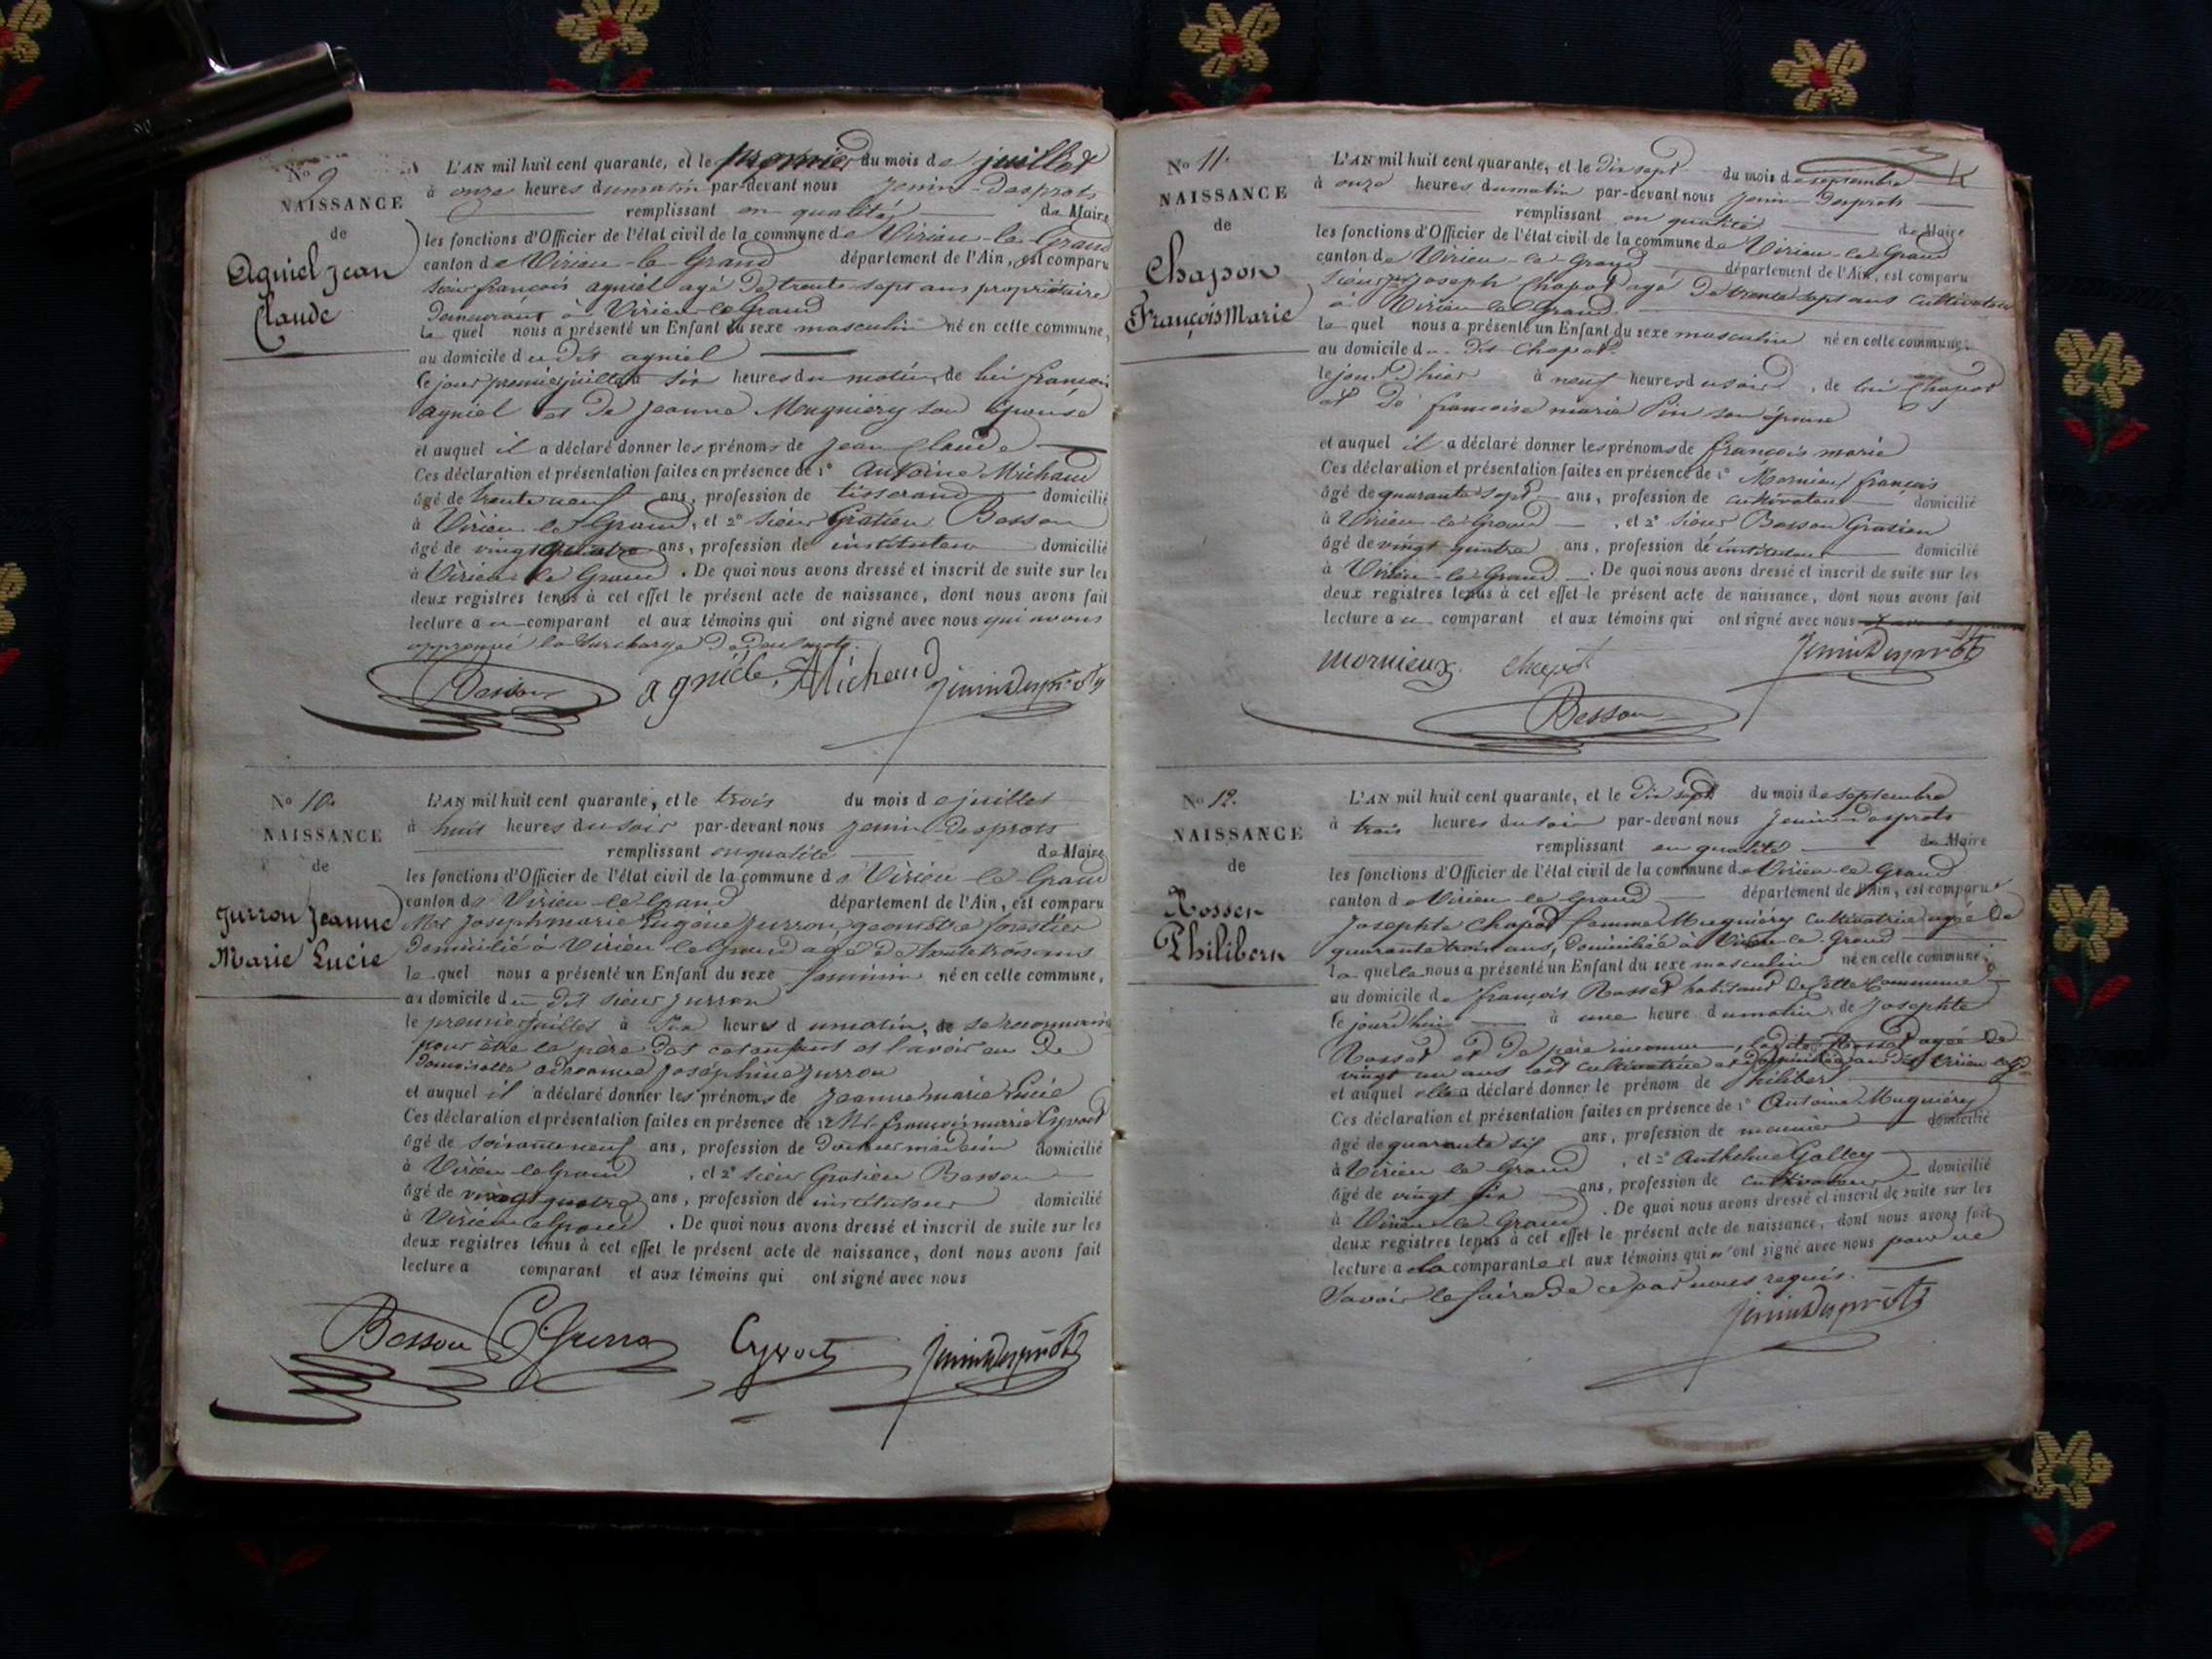 No 9
NAISSANCE
de
Agniel Jean
Claude
L'AN mil huit cent quarante, et le premier du mois de juillet
à onze heures du matin par-devant nous Jenin-Desprots
remplissant en qualité de Maire
les fonctions d'Officier de l'état civil de la commune de Virieu-le-Grand
canton de Virieu-le-Grand département de l'Ain, est comparu
sieur françois agniel agé de trente sept ans propriétaire
demeurant à Virieu le Grand
le quel nous a présenté un Enfant du sexe masculin né en cette commune,
au domicile du dit agniel
le jour premier juillet à six heures du matin, de lui françois
agniel et de jeanne Mugniery son épouse
et auquel il a déclaré donner les prénoms de jean claude
Ces déclaration et présentation faites en présence de 1° Antoine Michaud
âgé de trente neuf ans, profession de tisserand domicilié
à Virieu le Grand, et 2° sieur Gratien Besson
âgé de vingt quatre ans, profession de instituteur domicilié
à Virieu le Grand. De quoi nous avons dressé et inscrit de suite sur les
deux registres tenus à cet effet le présent acte de naissance, dont nous avons fait
lecture au comparant et aux témoins qui ont signé avec nous qui avons
approuvé la surcharge de deux mots.
Besson agniel Michaud Jenin Desprots
No 10.
NAISSANCE
de
Jurron Jeanne
Marie Lucie
L'AN mil huit cent quarante, et le trois du mois de juillet
à huit heures du soir par-devant nous Jenin-Desprots
remplissant en qualité de Maire
les fonctions d'Officier de l'état civil de la commune de Virieu-le-Grand
canton de Virieu-le-Grand département de l'Ain, est comparu
Mr Joseph marie Eugène Jurron, geomètre forestier
domicilié à Virieu-le-Grand agé de trente trois ans
le quel nous a présenté un Enfant du sexe feminin né en cette commune,
au domicile du dit sieur Jurron
le premier juillet à dix heures du matin, de se reconnaître
pour être le père det enfant et l'avoir eu de
demoiselle Josephine Jurron
et auquel il a déclaré donner les prénoms de Jeanne marie Lucie
Ces déclaration et présentation faites en présence de 1° Mr françois marie Cyvoct
âgé de soixante neuf ans, profession de docteur médecin domicilié
à Virieu-le-Grand, et 2° sieur Gratien Besson
âgé de vingt quatre ans, profession de instituteur domicilié
à Virieu le Grand. De quoi nous avons dressé et inscrit de suite sur les
deux registres tenus à cet effet le présent acte de naissance, dont nous avons fait
lecture a comparant et aux témoins qui ont signé avec nous
Besson Cyvoct Jenin Desprots
No 11.
NAISSANCE
de
Chapon
François Marie
L'AN mil huit cent quarante, et le dix sept du mois de septembre
à onze heures du matin par-devant nous Jenin-Desprots
remplissant en qualité de Maire
les fonctions d'Officier de l'état civil de la commune de Virieu-le-Grand
canton de Virieu-le-Grand département de l'Ain, est comparu
sieur joseph Chapot agé de trente sept ans cultivateur
à Virieu le Grand
le quel nous a présenté un Enfant du sexe masculin né en cette commune,
au domicile du dit Chapot
le jour d'hier à neuf heures du soir, de lui Chapot
et de françoise marie Pin son épouse
et auquel il a déclaré donner les prénoms de françois marie
Ces déclaration et présentation faites en présence de 1° Mornieux françois
âgé de quarante sept ans, profession de cultivateur domicilié
à Virieu-le-Grand, et 2° sieur Besson Gratien
âgé de vingt quatre ans, profession de instituteur domicilié
à Virieu-le-Grand. De quoi nous avons dressé et inscrit de suite sur les
deux registres tenus à cet effet le présent acte de naissance, dont nous avons fait
lecture au comparant et aux témoins qui ont signé avec nous
mornieux chapot Jenin Desprots
Besson
No 12.
NAISSANCE
de
Rosset
Philibert
L'AN mil huit cent quarante, et le dix sept du mois de septembre
à trois heures du soir par-devant nous Jenin-Desprots
remplissant en qualité de Maire
les fonctions d'Officier de l'état civil de la commune de Virieu-le-Grand
canton de Virieu-le-Grand département de l'Ain, est comparu
Josephte Chapot femme Mugniéry cultivatrice agée de
quarante trois ans, domiciliée à Virieu-le-Grand
la quelle nous a présenté un Enfant du sexe masculin né en cette commune,
au domicile de françois Rosset habitant de cette Commune
le jourd'hui à une heure du matin, de Josephte
Rosset et de père inconnu, ladite Rosset agée de
vingt un ans est cultivatrice et domiciliée au dit Virieu le Gd
et auquel elle a déclaré donner le prénom de Philibert
Ces déclaration et présentation faites en présence de 1° Antoine Mugniéry
âgé de quarante six ans, profession de meunier domicilié
à Virieu le Grand, et 2° Anthelme Galley
âgé de vingt six ans, profession de cultivateur domicilié
à Virieu-le-Grand. De quoi nous avons dressé et inscrit de suite sur les
deux registres tenus à cet effet le présent acte de naissance, dont nous avons fait
lecture a la comparante et aux témoins qui n'ont signé avec nous pour ne
savoir le faire de ce par nous requis.
Jenin Desprots